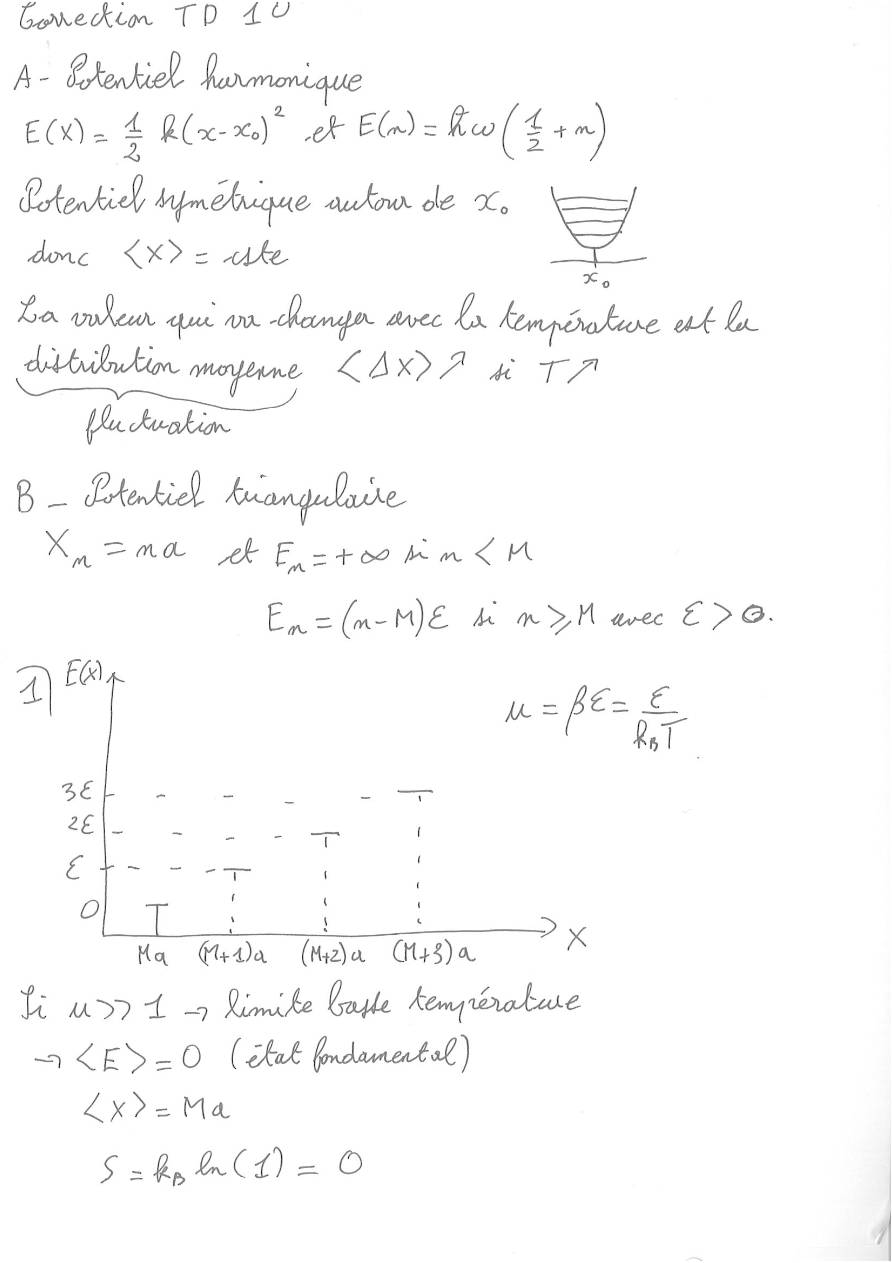 Correction TD 10
A - Potentiel harmonique
E(X) = 1/2 k(x-x₀)² et E(n) = ħω(1/2 + n)
Potentiel symétrique autour de x₀
donc <X> = cste
x₀
La valeur qui va changer avec la température est la
distribution moyenne <ΔX>↗ si T↗
fluctuation
B - Potentiel triangulaire
Xₙ = na et Eₙ = +∞ si n < M
Eₙ = (n-M)ε si n ⩾ M avec ε > 0.
1) E(x)
u = βε = ε/(k_B T)
3ε
2ε
ε
0
Ma (M+1)a (M+2)a (M+3)a X
Si u >> 1 → limite basse température
→ <E> = 0 (état fondamental)
<X> = Ma
S = k_B ln(1) = 0